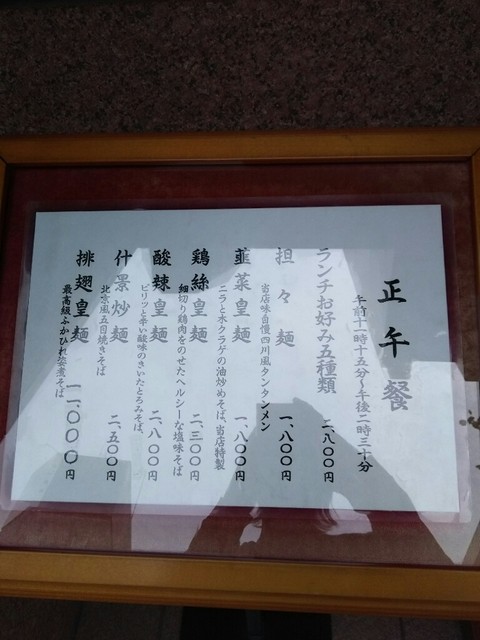 正午餐
午前十一時十五分～午後二時三十分
ランチお好み五種類 二、八〇〇円
担々麺 一、八〇〇円
当店味自慢四川風タンタンメン
韮菜皇麺 一、八〇〇円
ニラと木クラゲの油炒めそば、当店特製
鶏絲皇麺 二、三〇〇円
細切り鶏肉をのせたヘルシーな塩味そば
酸辣皇麺 二、八〇〇円
ピリッと辛い酸味のきいたとろみそば、
什景炒麺 二、五〇〇円
北京風五目焼きそば
排翅皇麺 一一、〇〇〇円
最高級ふかひれ姿煮そば